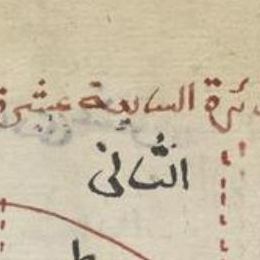 ئرة السابعة عشرة
الثانى
ط